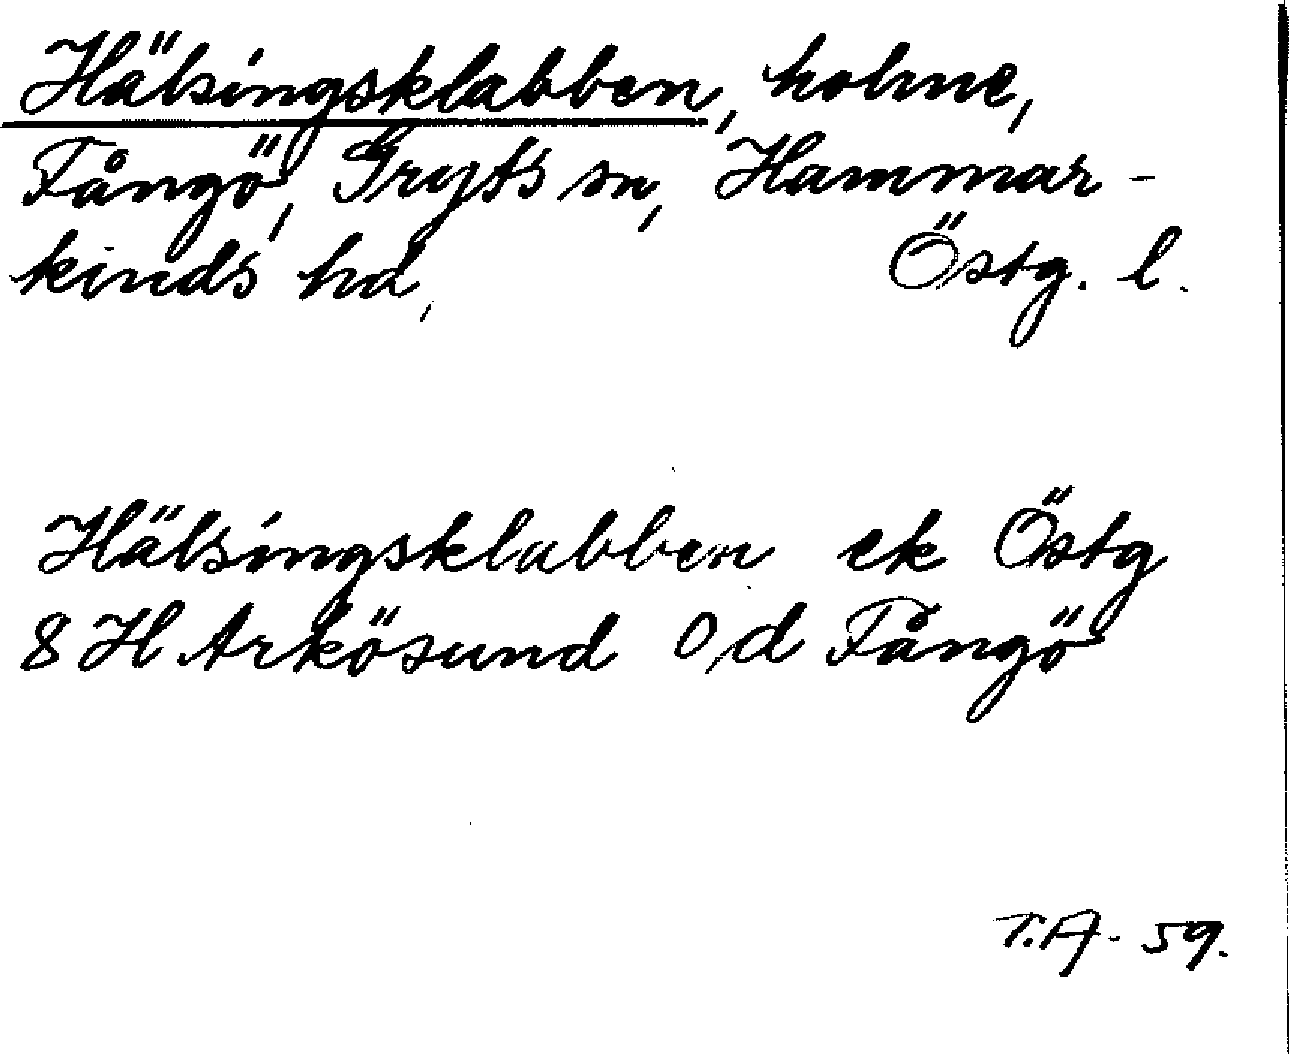 Hälsingsklabben, holme,
Fångö, Gryts sn, Hammar-
kinds hd, Östg. l.
Hälsingsklabben ek Östg
8 H Arkösund 0,d Fångö
T.A. 59.